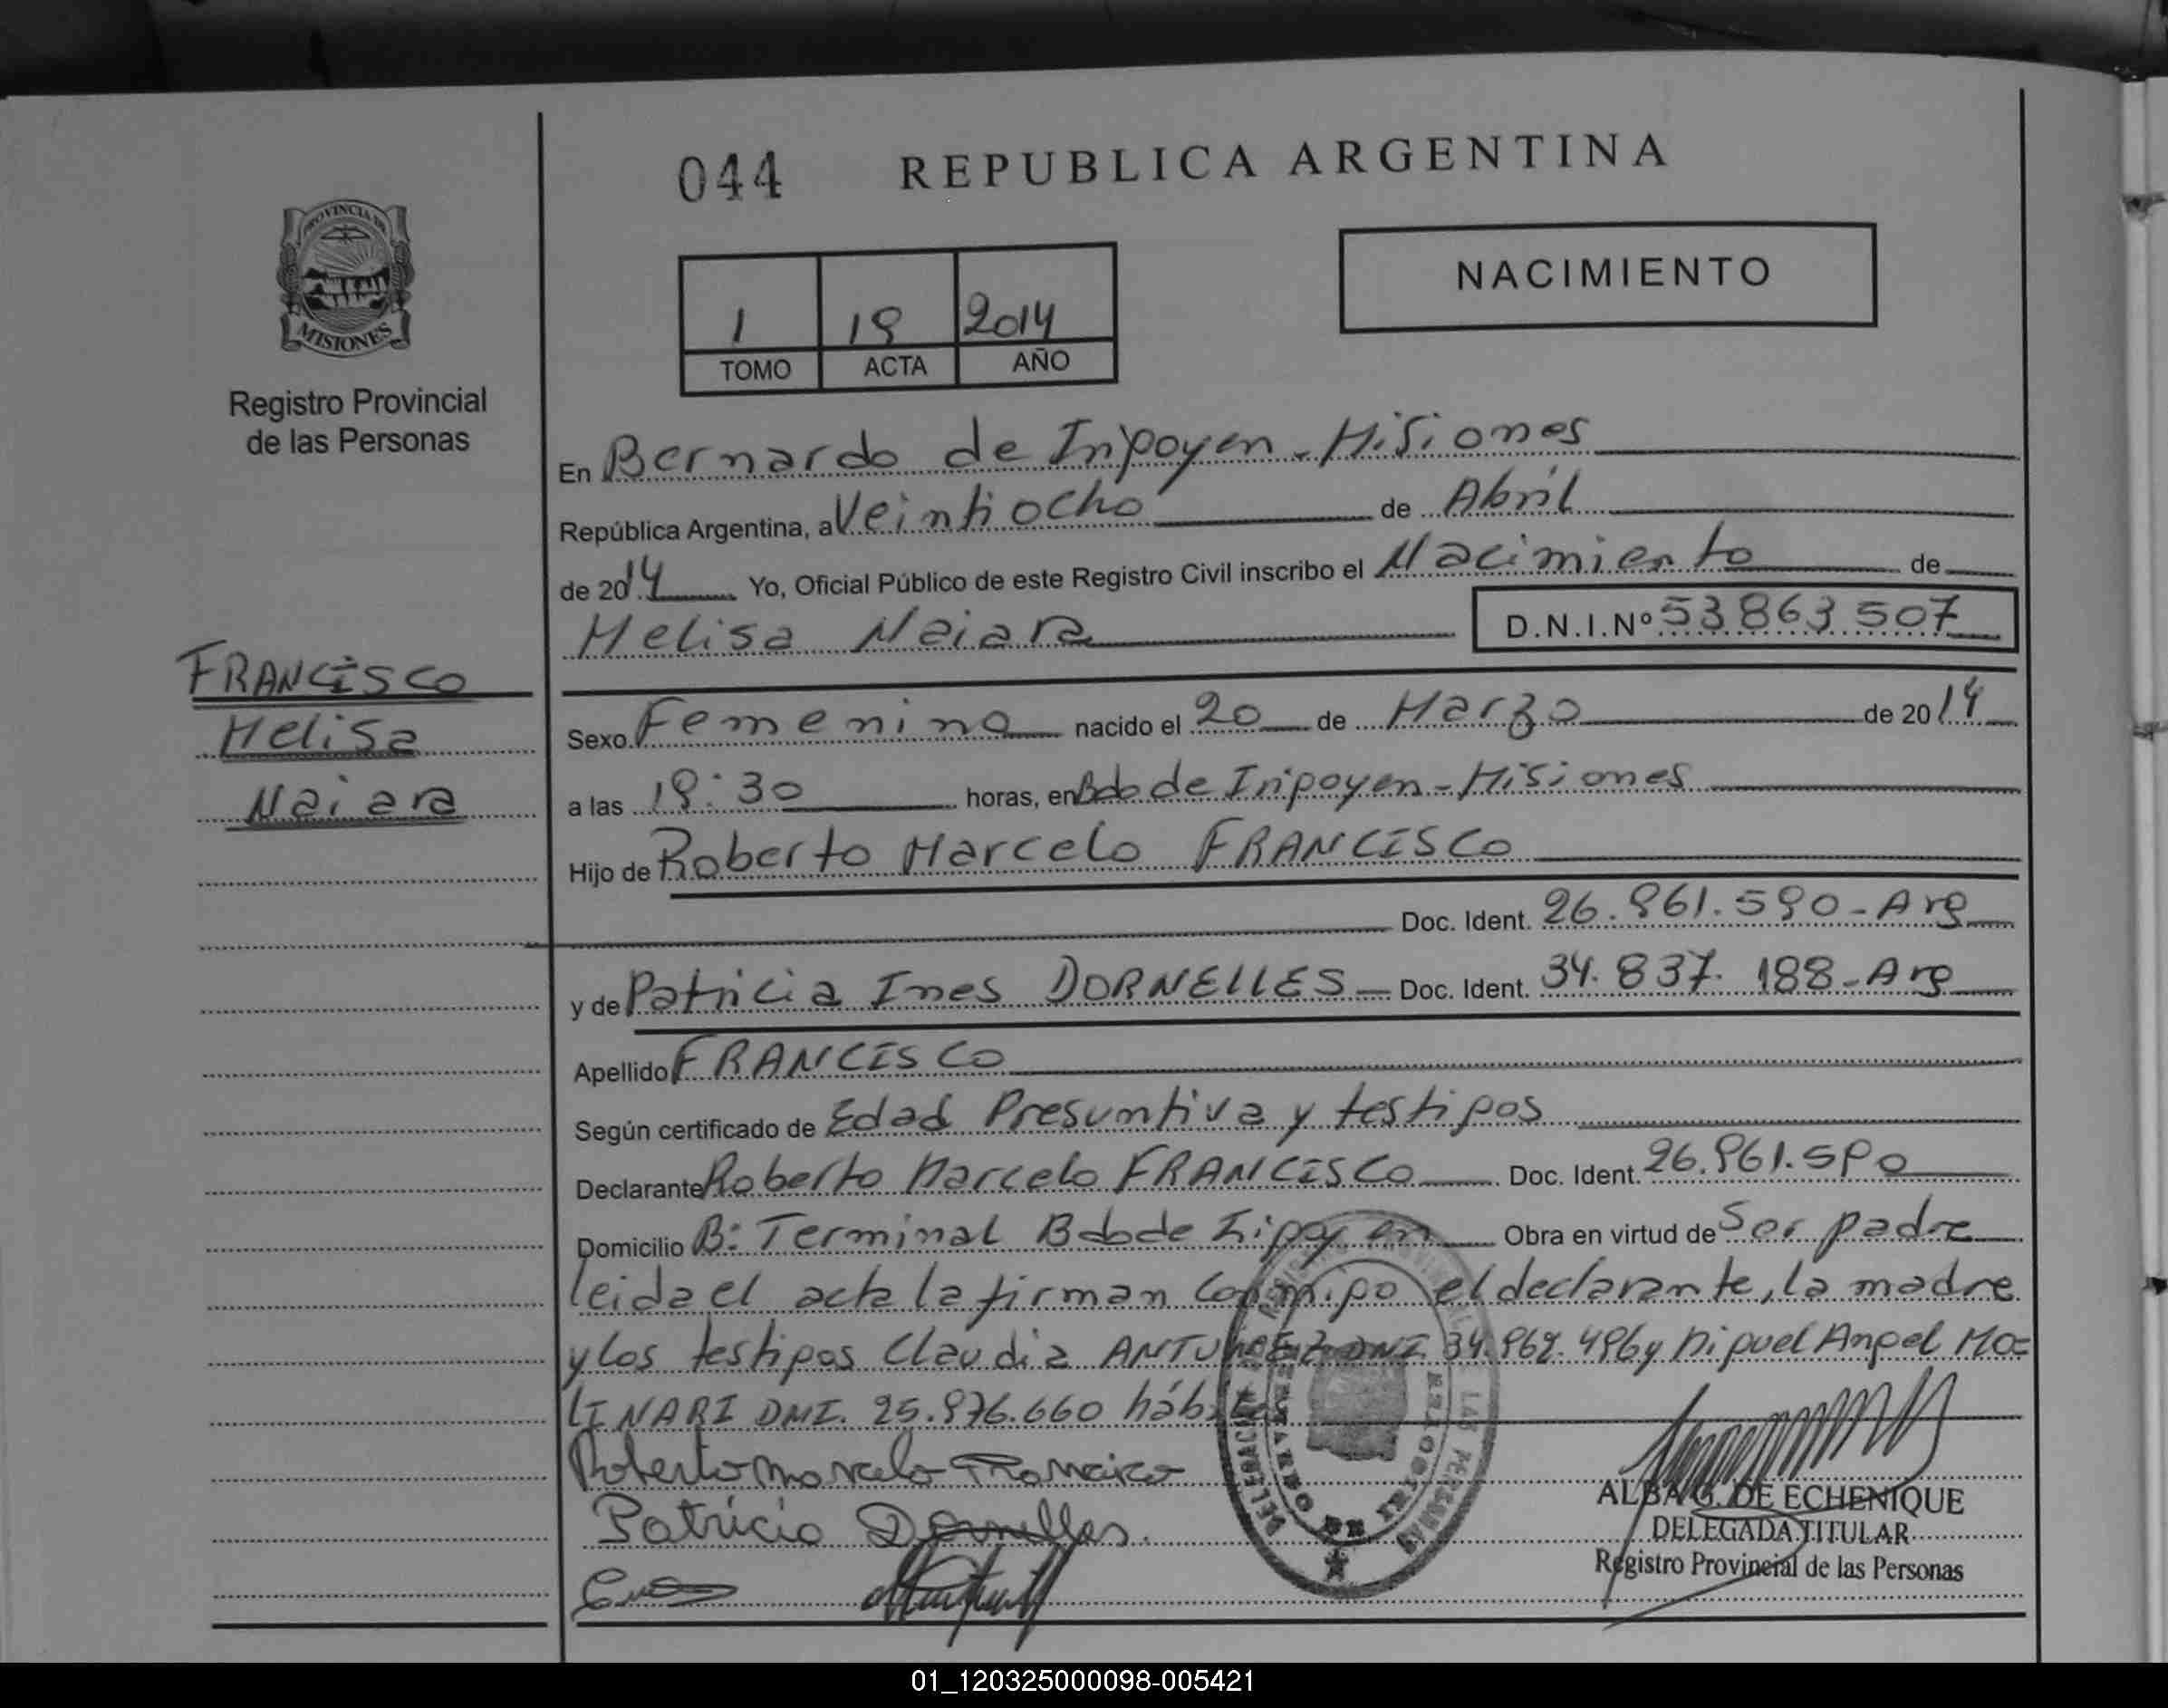 044 REPUBLICA ARGENTINA
PROVINCIA DE
MISIONES
NACIMIENTO
1 19 2014
TOMO ACTA AÑO
Registro Provincial
de las Personas
En Bernardo de Irigoyen - Misiones
República Argentina, a Veintiocho de Abril
de 2014 Yo, Oficial Público de este Registro Civil inscribo el Nacimiento de
Melisa Naiara D.N.I.Nº 53863507
FRANCISCO
Melisa
Naiara
Sexo Femenino nacido el 20 de Marzo de 2014
a las 19:30 horas, en Bdo de Irigoyen - Misiones
Hijo de Roberto Marcelo FRANCISCO
Doc. Ident. 26.961.590 - Arg
y de Patricia Ines DORNELLES - Doc. Ident. 34.837.188 - Arg
Apellido FRANCISCO
Según certificado de Edad Presuntiva y testigos
Declarante Roberto Marcelo FRANCISCO Doc. Ident. 26.961.590
Domicilio B: Terminal Bdo de Irigoyen Obra en virtud de Ser padre
leida el acta la firman conmigo el declarante, la madre
y los testigos Claudia DNI 34.969.496 y Miguel Angel MO=
LINARI DNI. 25.976.660
Roberto Marcelo Francisco
Patricia Dornelles.
ALBA G. DE ECHENIQUE
DELEGADA TITULAR
Registro Provincial de las Personas
01_120325000098-005421